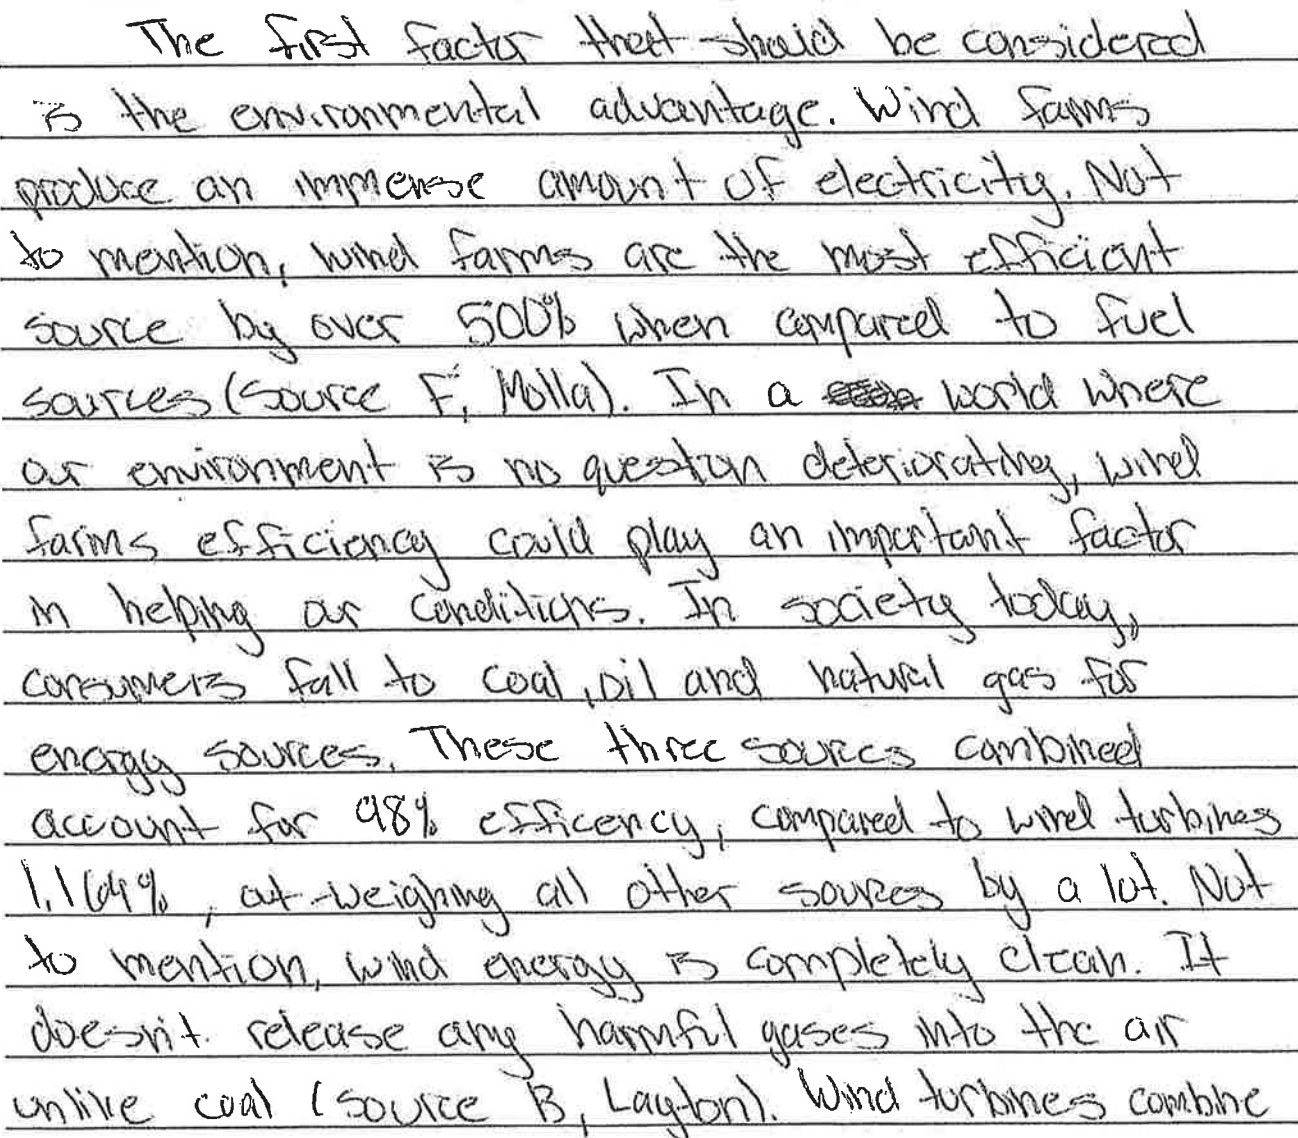 The first factor that should be considered
is the environmental advantage. Wind farms
produce an immense amount of electricity. Not
to mention, wind farms are the most efficient
source by over 500% when compared to fuel
sources (Source F, Molla). In a world where
our environment is no question deteriorating, wind
farms efficiency could play an important factor
in helping our conditions. In society today,
consumers fall to coal, oil and natural gas for
energy sources. These three sources combined
account for 98% efficency, compared to wind turbines
1,164%, out-weighing all other sources by a lot. Not
to mention, wind energy is completely clean. It
doesn't release any harmful gases into the air
unlike coal (Source B, Layton). Wind turbines combine